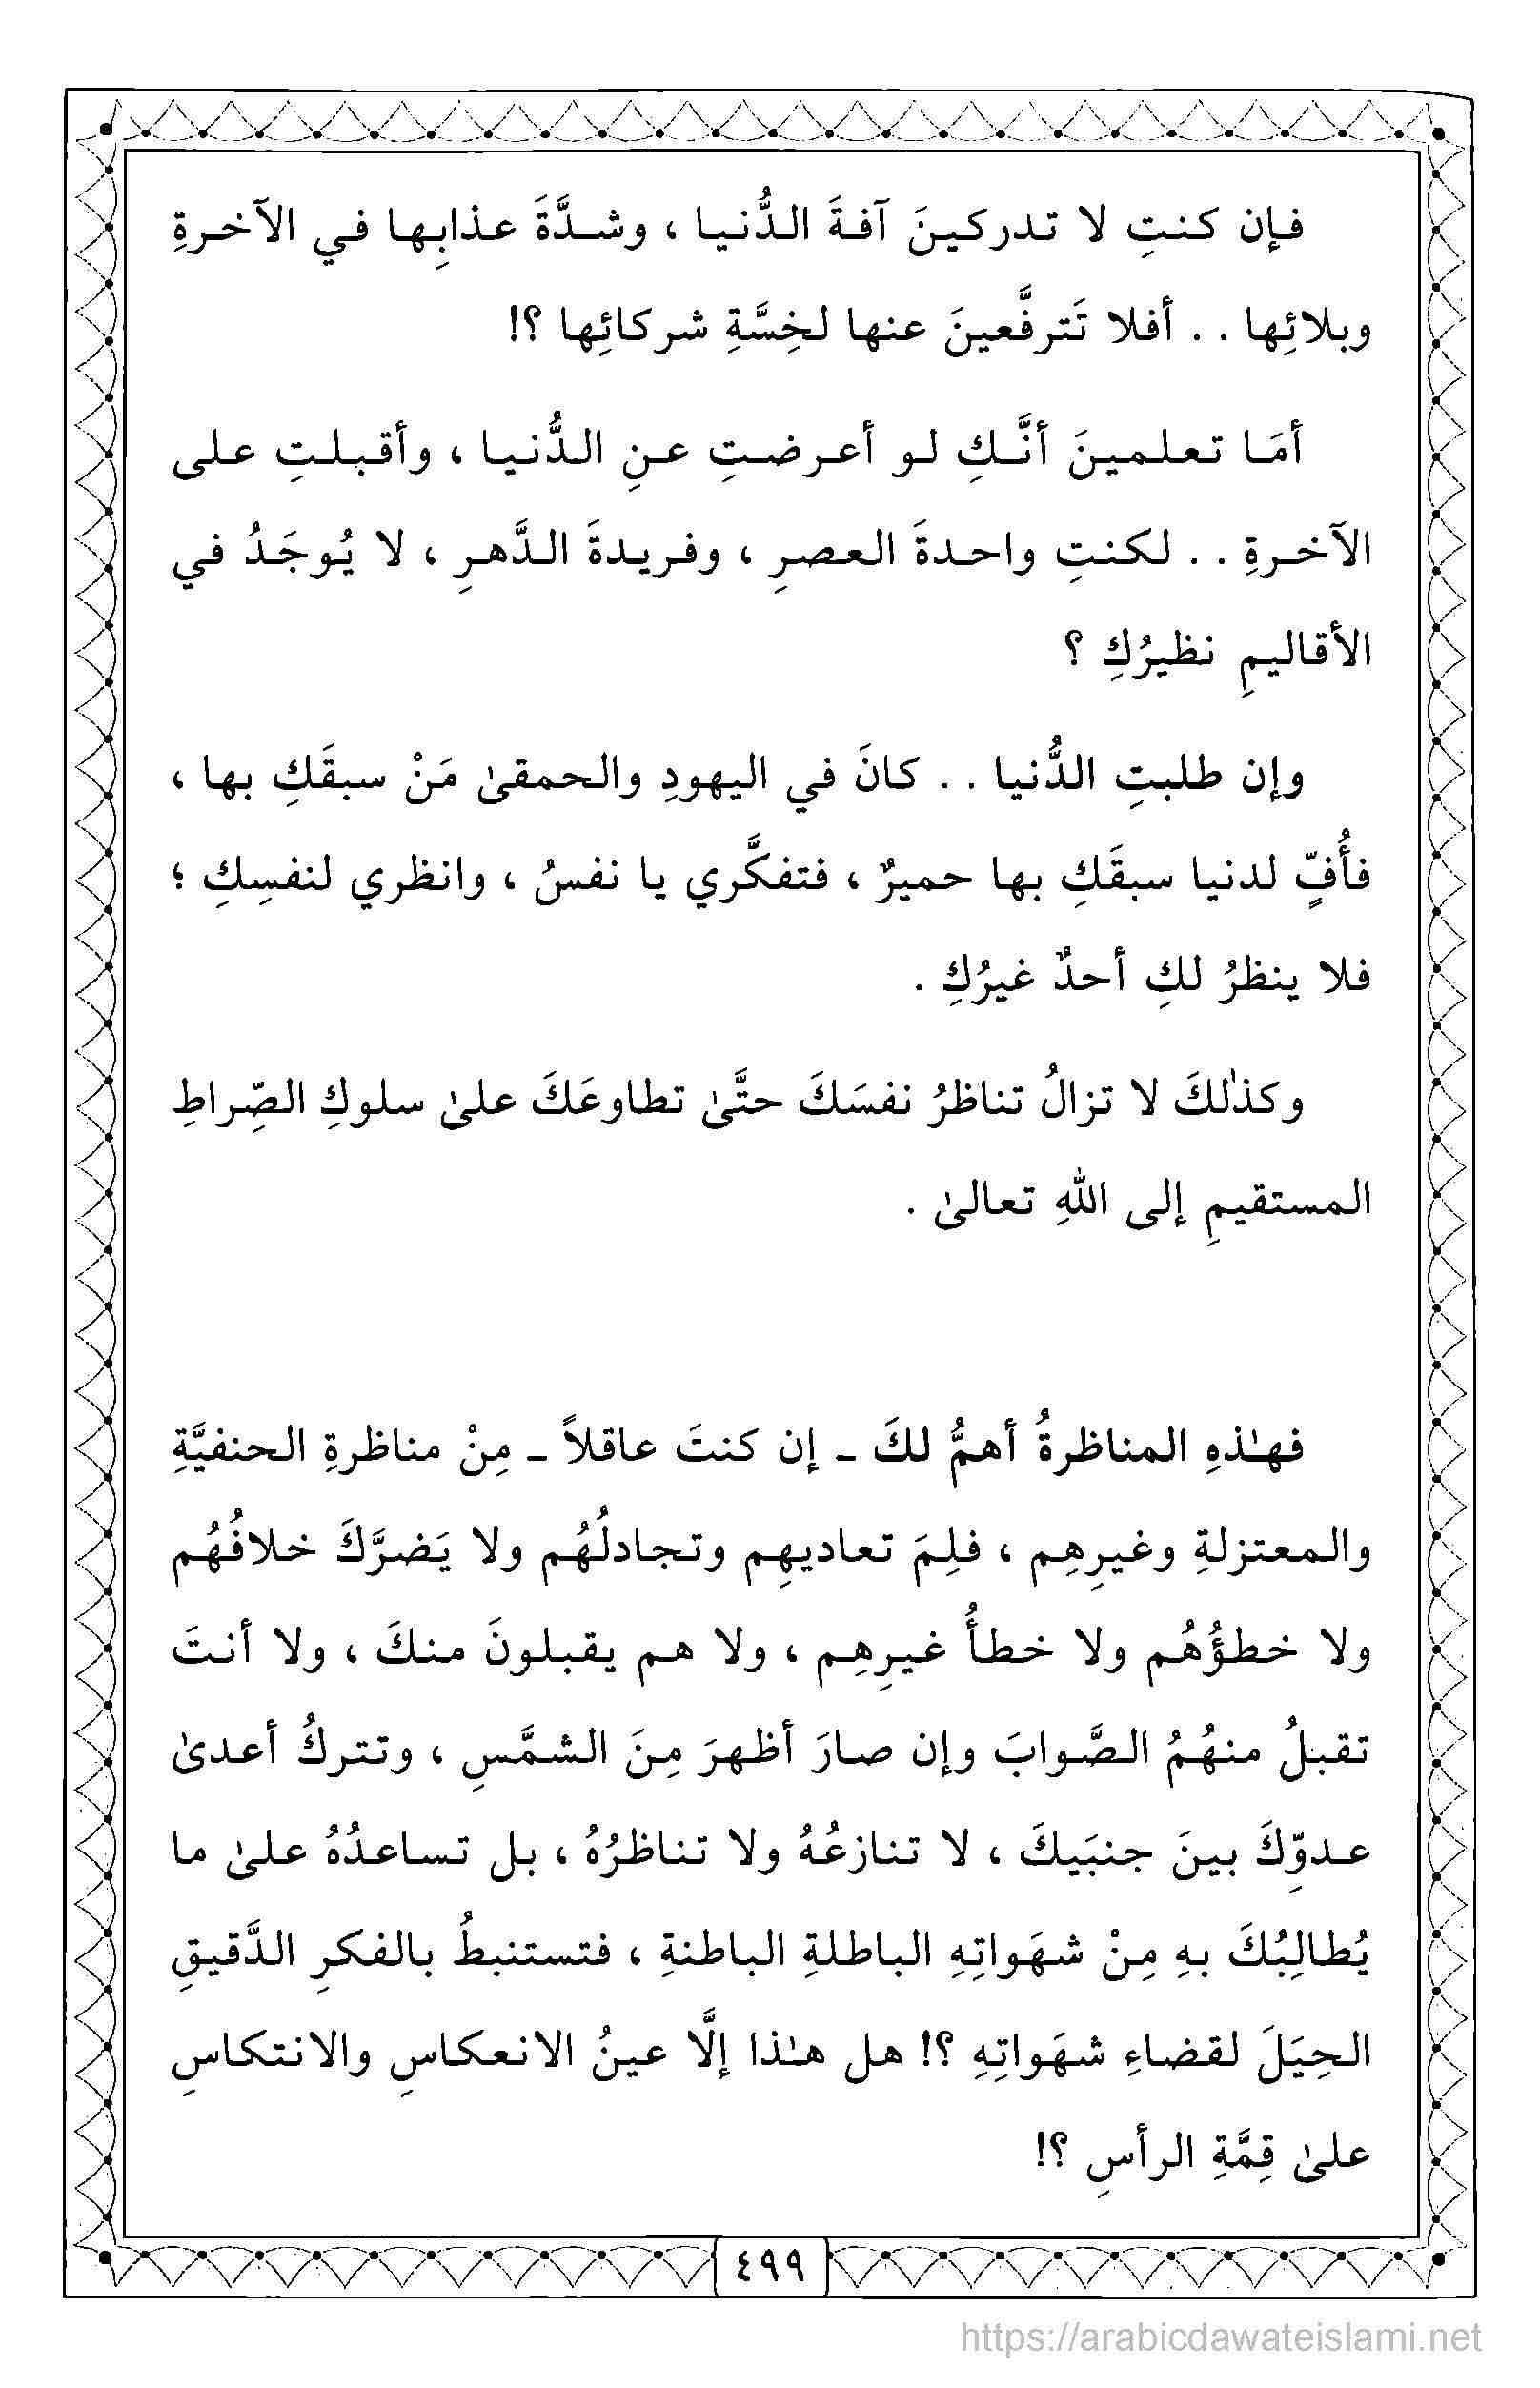 فإن كنتِ لا تدركينَ آفةَ الدُّنيا ، وشدَّةَ عذابِها في الآخرةِ
وبلائِها . . أفلا تَترفَّعينَ عنها لخِسَّةِ شركائِها ؟!
أمَا تعلمينَ أنَّكِ لو أعرضتِ عنِ الدُّنيا ، وأقبلتِ على
الآخرةِ . . لكنتِ واحدةَ العصرِ ، وفريدةَ الدَّهرِ ، لا يُوجَدُ في
الأقاليمِ نظيرُكِ ؟
وإن طلبتِ الدُّنيا . . كانَ في اليهودِ والحمقىٰ مَنْ سبقَكِ بها ،
فأُفٍّ لدنيا سبقَكِ بها حميرٌ ، فتفكَّري يا نفسُ ، وانظري لنفسِكِ ؛
فلا ينظرُ لكِ أحدٌ غيرُكِ .
وكذٰلكَ لا تزالُ تناظرُ نفسَكَ حتَّىٰ تطاوعَكَ علىٰ سلوكِ الصِّراطِ
المستقيمِ إلى اللهِ تعالىٰ .
فهٰذهِ المناظرةُ أهمُّ لكَ - إن كنتَ عاقلاً - مِنْ مناظرةِ الحنفيَّةِ
والمعتزلةِ وغيرِهِم ، فلِمَ تعاديهِم وتجادلُهُم ولا يَضرَّكَ خلافُهُم
ولا خطؤُهُم ولا خطأُ غيرِهِم ، ولا هم يقبلونَ منكَ ، ولا أنتَ
تقبلُ منهُمُ الصَّوابَ وإن صارَ أظهرَ مِنَ الشمَّسِ ، وتتركُ أعدىٰ
عدوِّكَ بينَ جنبَيكَ ، لا تنازعُهُ ولا تناظرُهُ ، بل تساعدُهُ علىٰ ما
يُطالِبُكَ بهِ مِنْ شهَواتِهِ الباطلةِ الباطنةِ ، فتستنبطُ بالفكرِ الدَّقيقِ
الحِيَلَ لقضاءِ شهَواتِهِ ؟! هل هٰذا إلَّا عينُ الانعكاسِ والانتكاسِ
علىٰ قِمَّةِ الرأسِ ؟!
٤٩٩
https://arabicdawateislami.net